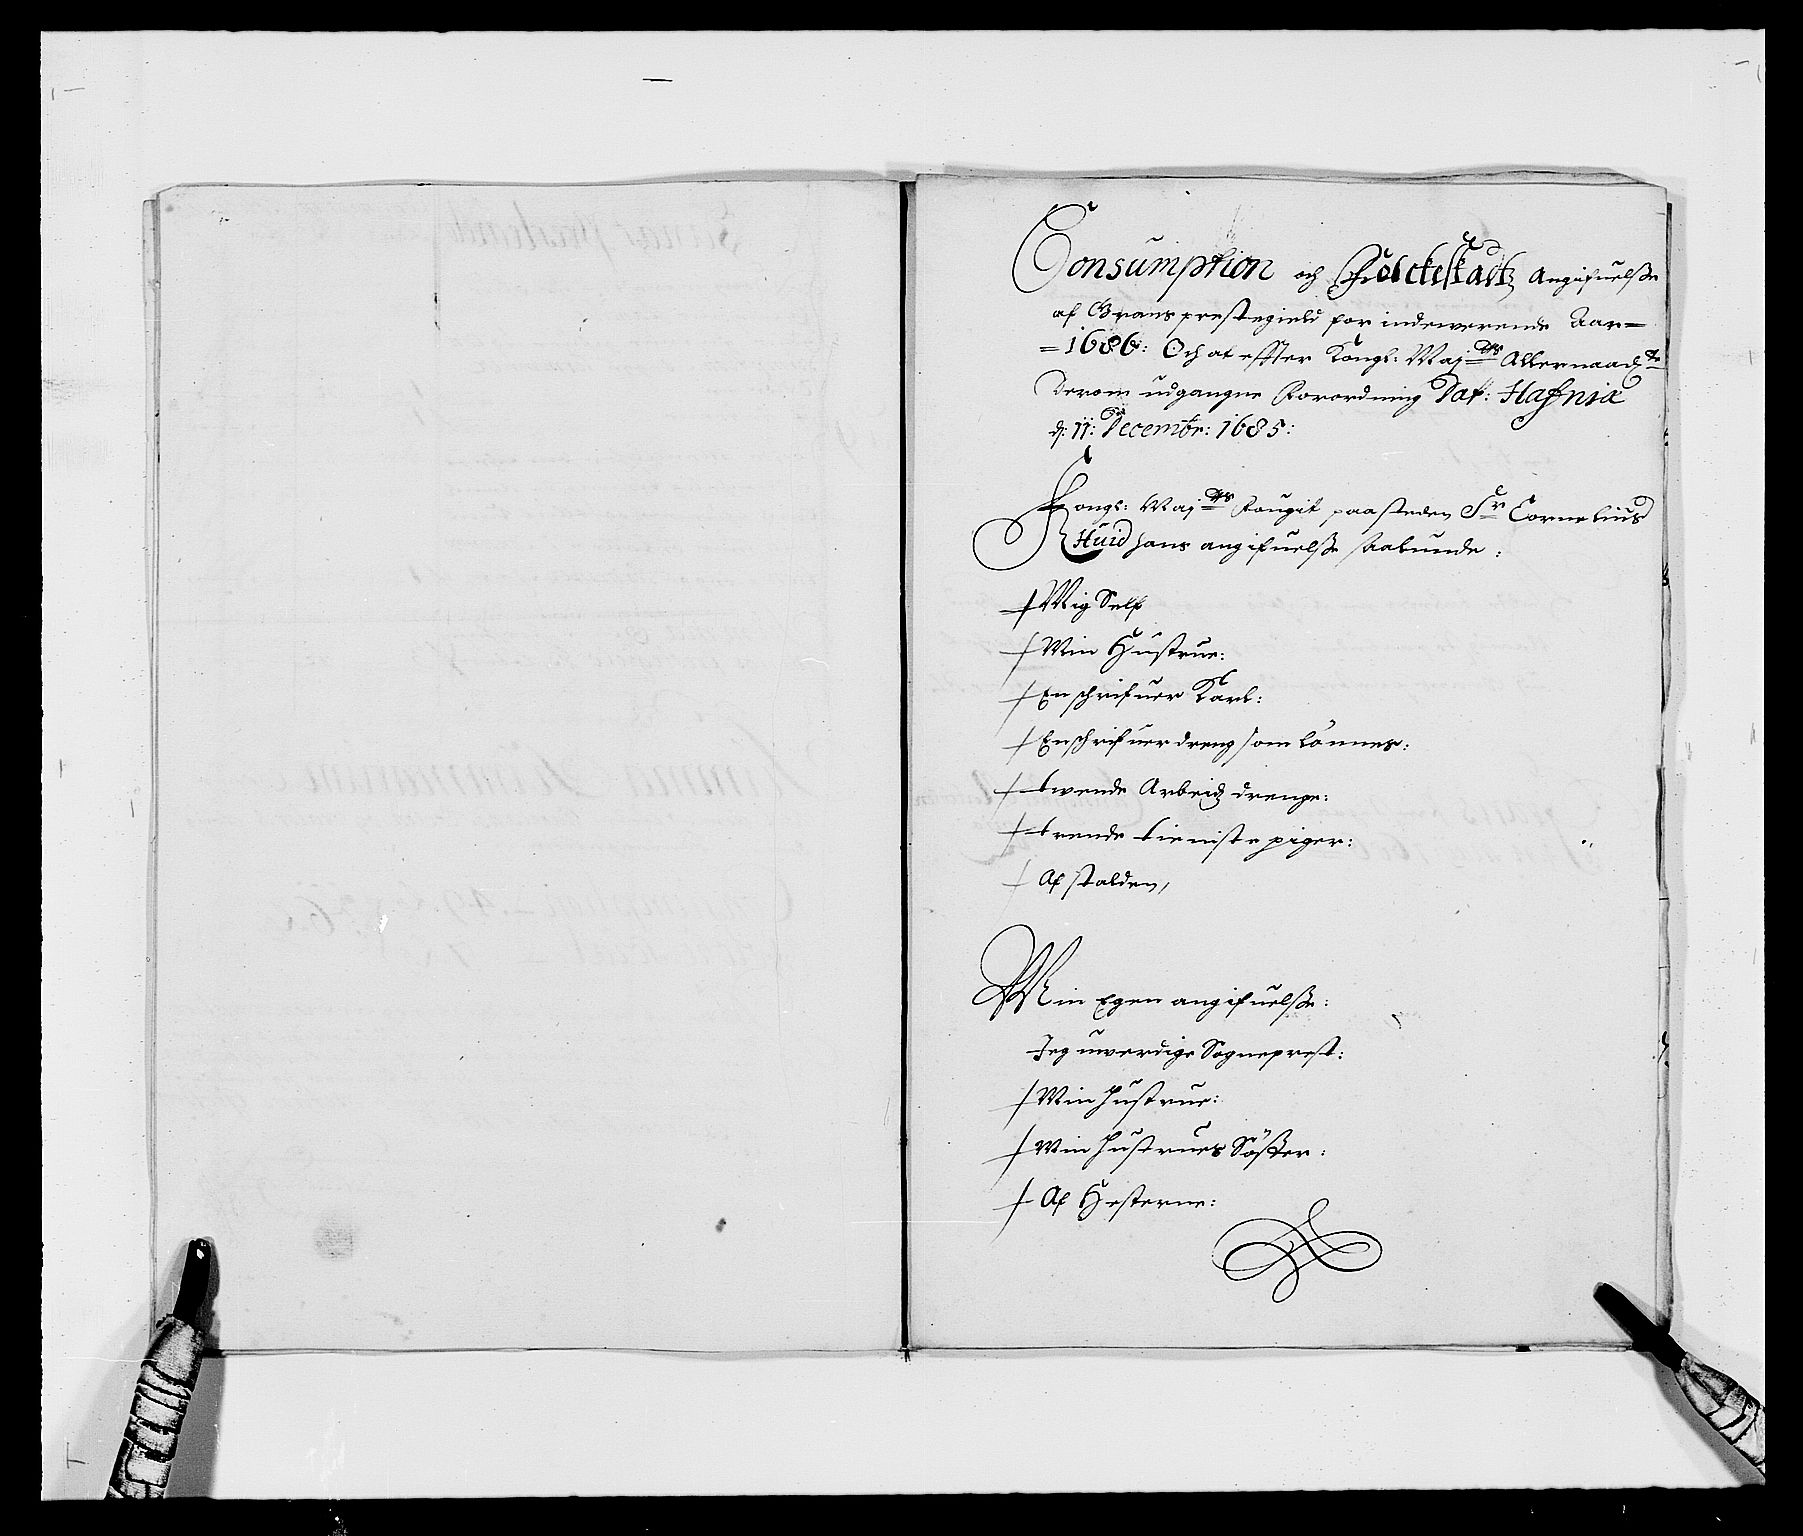 Consumption och Folckeskatz Angifuelsse
af Grans prestegield for indewerende Aar=
=1686: Och at effter Kongl: Maj:ts Allernaad:te
derom udgangne Forordning Dat: Hafniæ
d: 11: Decembr: 1685:
Kongl: Maj:ts Fougit paa steden Sr Cornelius
Huid hans angifuelsse saalunde:
Mig Self
Min Hustrue:
En schrifuer Karl:
En schrifuer dreng som lönnes:
twende Arbeidz drenge:
trende tieniste piger:
Af stalden,
Min Egen angifuelsse:
Jeg uwerdige Sogneprest:
Min hustrue:
Min hustrues Söster:
Af Hesterne: